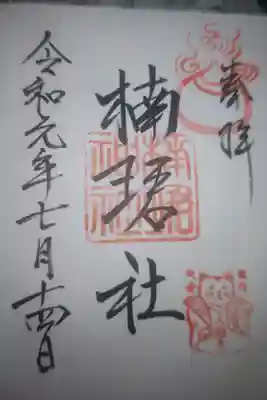 奉拝
楠珺社
令和元年七月十四日